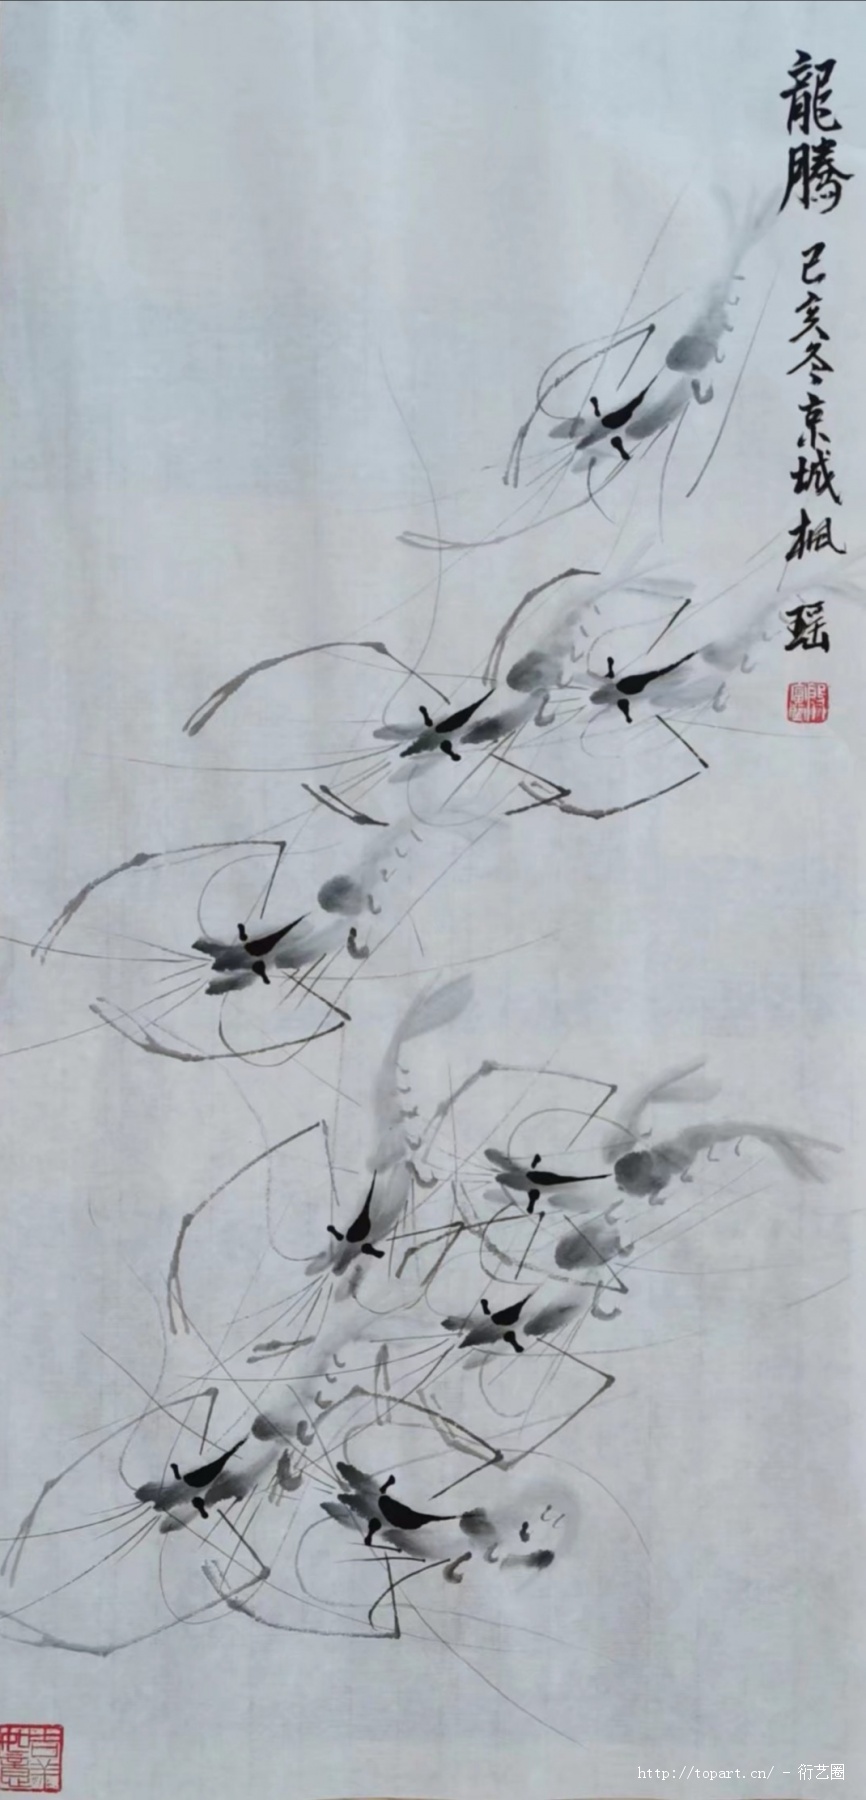 龍騰
己亥冬京城楓瑶
吉祥
如意
http://topart.cn/ - 衍艺圈